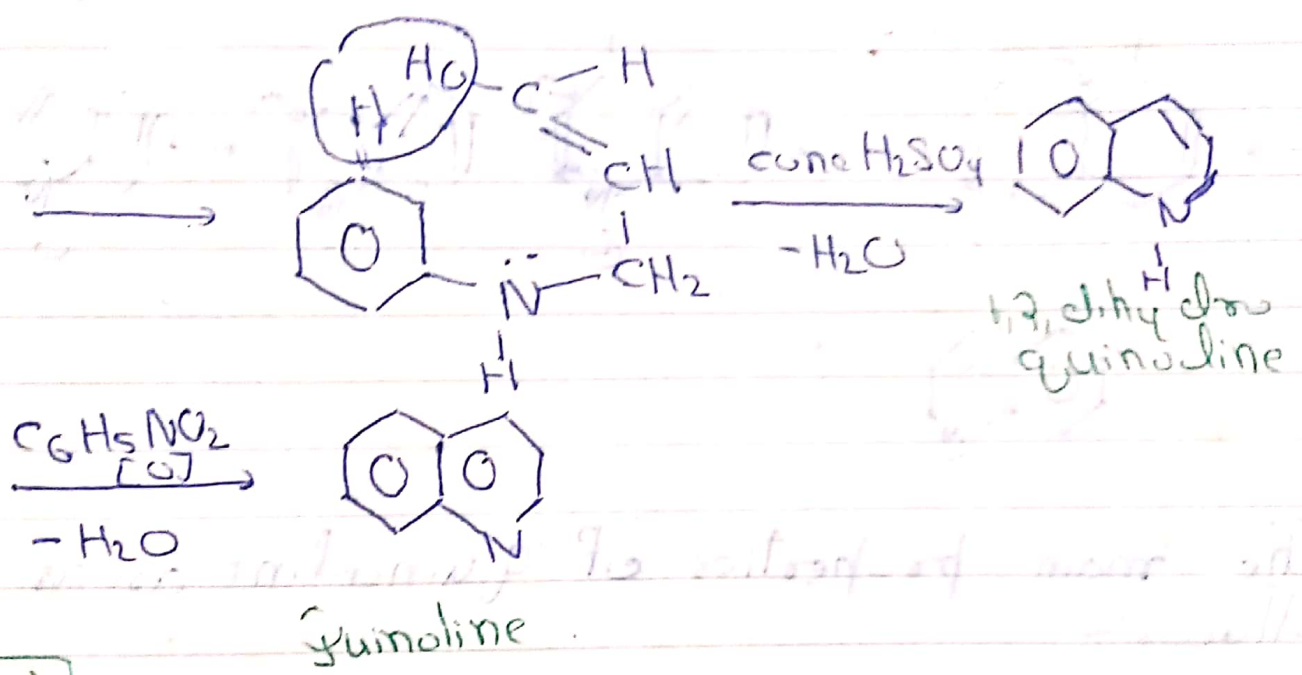 HO - C - H
H
CH
N̈ - CH2
H
conc H2SO4
-H2O
N
H
1,2, dihydro
quinoline
C6H5NO2
[O]
- H2O
N
quinoline